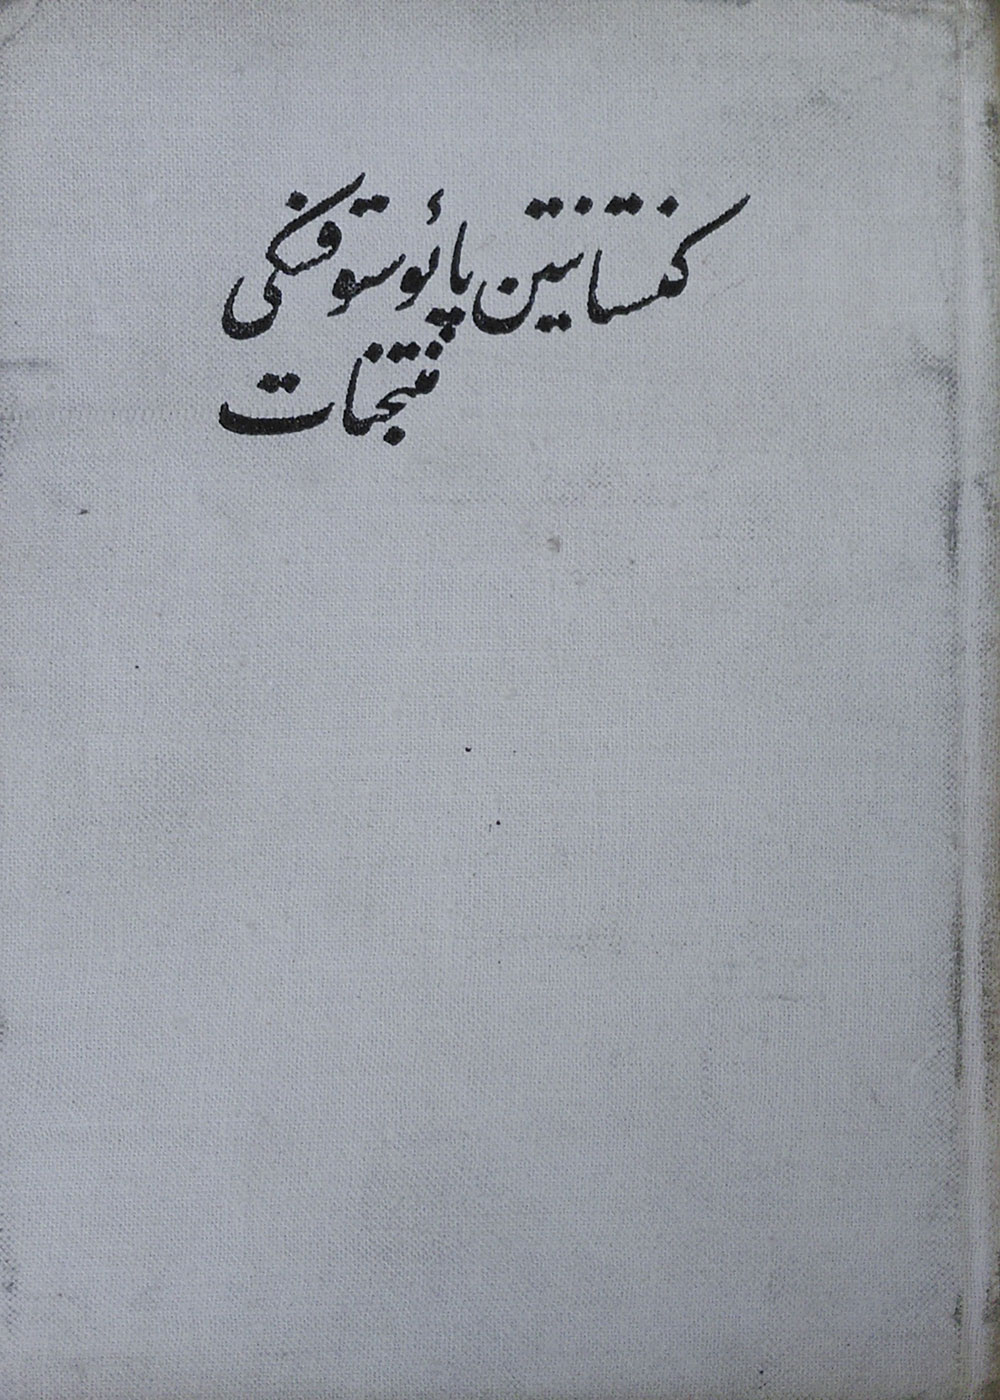 کنستانتین پائوستوفسکی
منتخبات